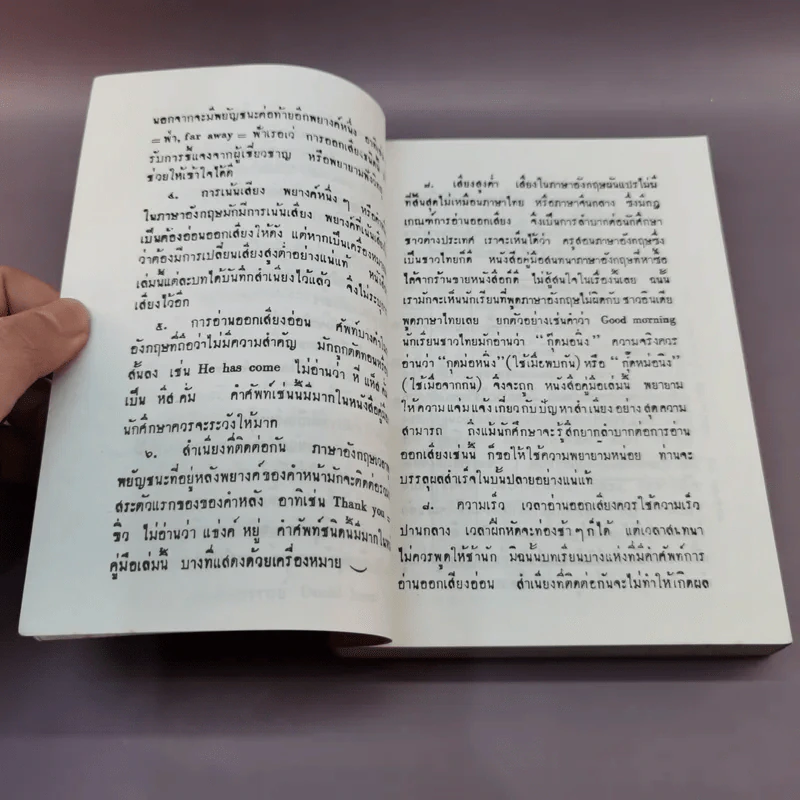 นอกจากจะมีพยัญชนะต่อท้ายอีกพยางค์หนึ่ง อาทิเช่น
= ฟ้า, far away = ฟ้าเรอเว่ การออกเสียงชนิดนี้
รับการชี้แจงจากผู้เชี่ยวชาญ หรือพยายามฟัง
ช่วยให้เข้าใจได้ดี
๔. การเน้นเสียง พยางค์หนึ่ง ๆ หรือ
ในภาษาอังกฤษมักมีการเน้นเสียง พยางค์ที่เน้นเสียง
เป็นต้องอ่านออกเสียงให้ดัง แต่หากเป็นเครื่องหมาย
ว่าต้องมีการเปลี่ยนเสียงสูงต่ำอย่างแน่แท้ หนังสือ
เล่มนี้แต่ละบทได้บันทึกสำเนียงไว้แล้ว จึงไม่ระบุ
เสียงไว้อีก
๕. การอ่านออกเสียงอ่อน ศัพท์บางคำใน
อังกฤษที่ถือว่าไม่มีความสำคัญ มักถูกตัดทอน
สั้นลง เช่น He has come ไม่อ่านว่า ฮี แฮ็ส คัม
เป็น ฮีส คัม คำศัพท์เช่นนี้มีมากในหนังสือคู่มือ
นักศึกษาควรจะระวังให้มาก
๖. สำเนียงที่ติดต่อกัน ภาษาอังกฤษ
พยัญชนะที่อยู่หลังพยางค์ของคำหน้ามักจะติดต่อ
สระตัวแรกของของคำหลัง อาทิเช่น Thank you =
ขิ่ว ไม่อ่านว่า แธ่งค์ หยู่ คำศัพท์ชนิดนี้มีมากใน
คู่มือเล่มนี้ บางที่แสดงด้วยเครื่องหมาย ‿
๗. เสียงสูงต่ำ เสียงในภาษาอังกฤษผันแปรไม่มี
ที่สิ้นสุดไม่เหมือนภาษาไทย หรือภาษาจีนกลาง ซึ่งมีกฎ
เกณฑ์การอ่านออกเสียง จึงเป็นการลำบากต่อนักศึกษา
ชาวต่างประเทศ เราจะเห็นได้ว่า ครูสอนภาษาอังกฤษซึ่ง
เป็นชาวไทยก็ดี หนังสือคู่มือสนทนาภาษาอังกฤษที่หาซื้อ
ได้จากร้านขายหนังสือก็ดี ไม่สู้สนใจในเรื่องนี้เลย ฉนั้น
เรามักจะเห็นนักเรียนที่พูดภาษาอังกฤษไม่ผิดกับชาวอินเดีย
พูดภาษาไทยเลย ยกตัวอย่างเช่นคำว่า Good morning
นักเรียนชาวไทยมักอ่านว่า “กู๊ดม้อนิ่ง” ความจริงควร
อ่านว่า “กุ๊ดม่อหนิ่ง” (ใช้เมื่อพบกัน) หรือ “กุ๊ดหม่อนิง”
(ใช้เมื่อจากกัน) จึงจะถูก หนังสือคู่มือเล่มนี้ พยายาม
ให้ความแจ่มแจ้งเกี่ยวกับปัญหาสำเนียงอย่างสุดความ
สามารถ ถึงแม้นักศึกษาจะรู้สึกยากลำบากต่อการอ่าน
ออกเสียงเช่นนี้ ก็ขอให้ใช้ความพยายามหน่อย ท่านจะ
บรรลุผลสำเร็จในบั้นปลายอย่างแน่แท้
๘. ความเร็ว เวลาอ่านออกเสียงควรใช้ความเร็ว
ปานกลาง เวลาฝึกหัดจะท่องช้า ๆ ก็ได้ แต่เวลาสนทนา
ไม่ควรพูดให้ช้านัก มิฉนั้นบทเรียนบางแห่งที่มีคำศัพท์การ
อ่านออกเสียงอ่อน สำเนียงที่ติดต่อกันจะไม่ทำให้เกิดผล